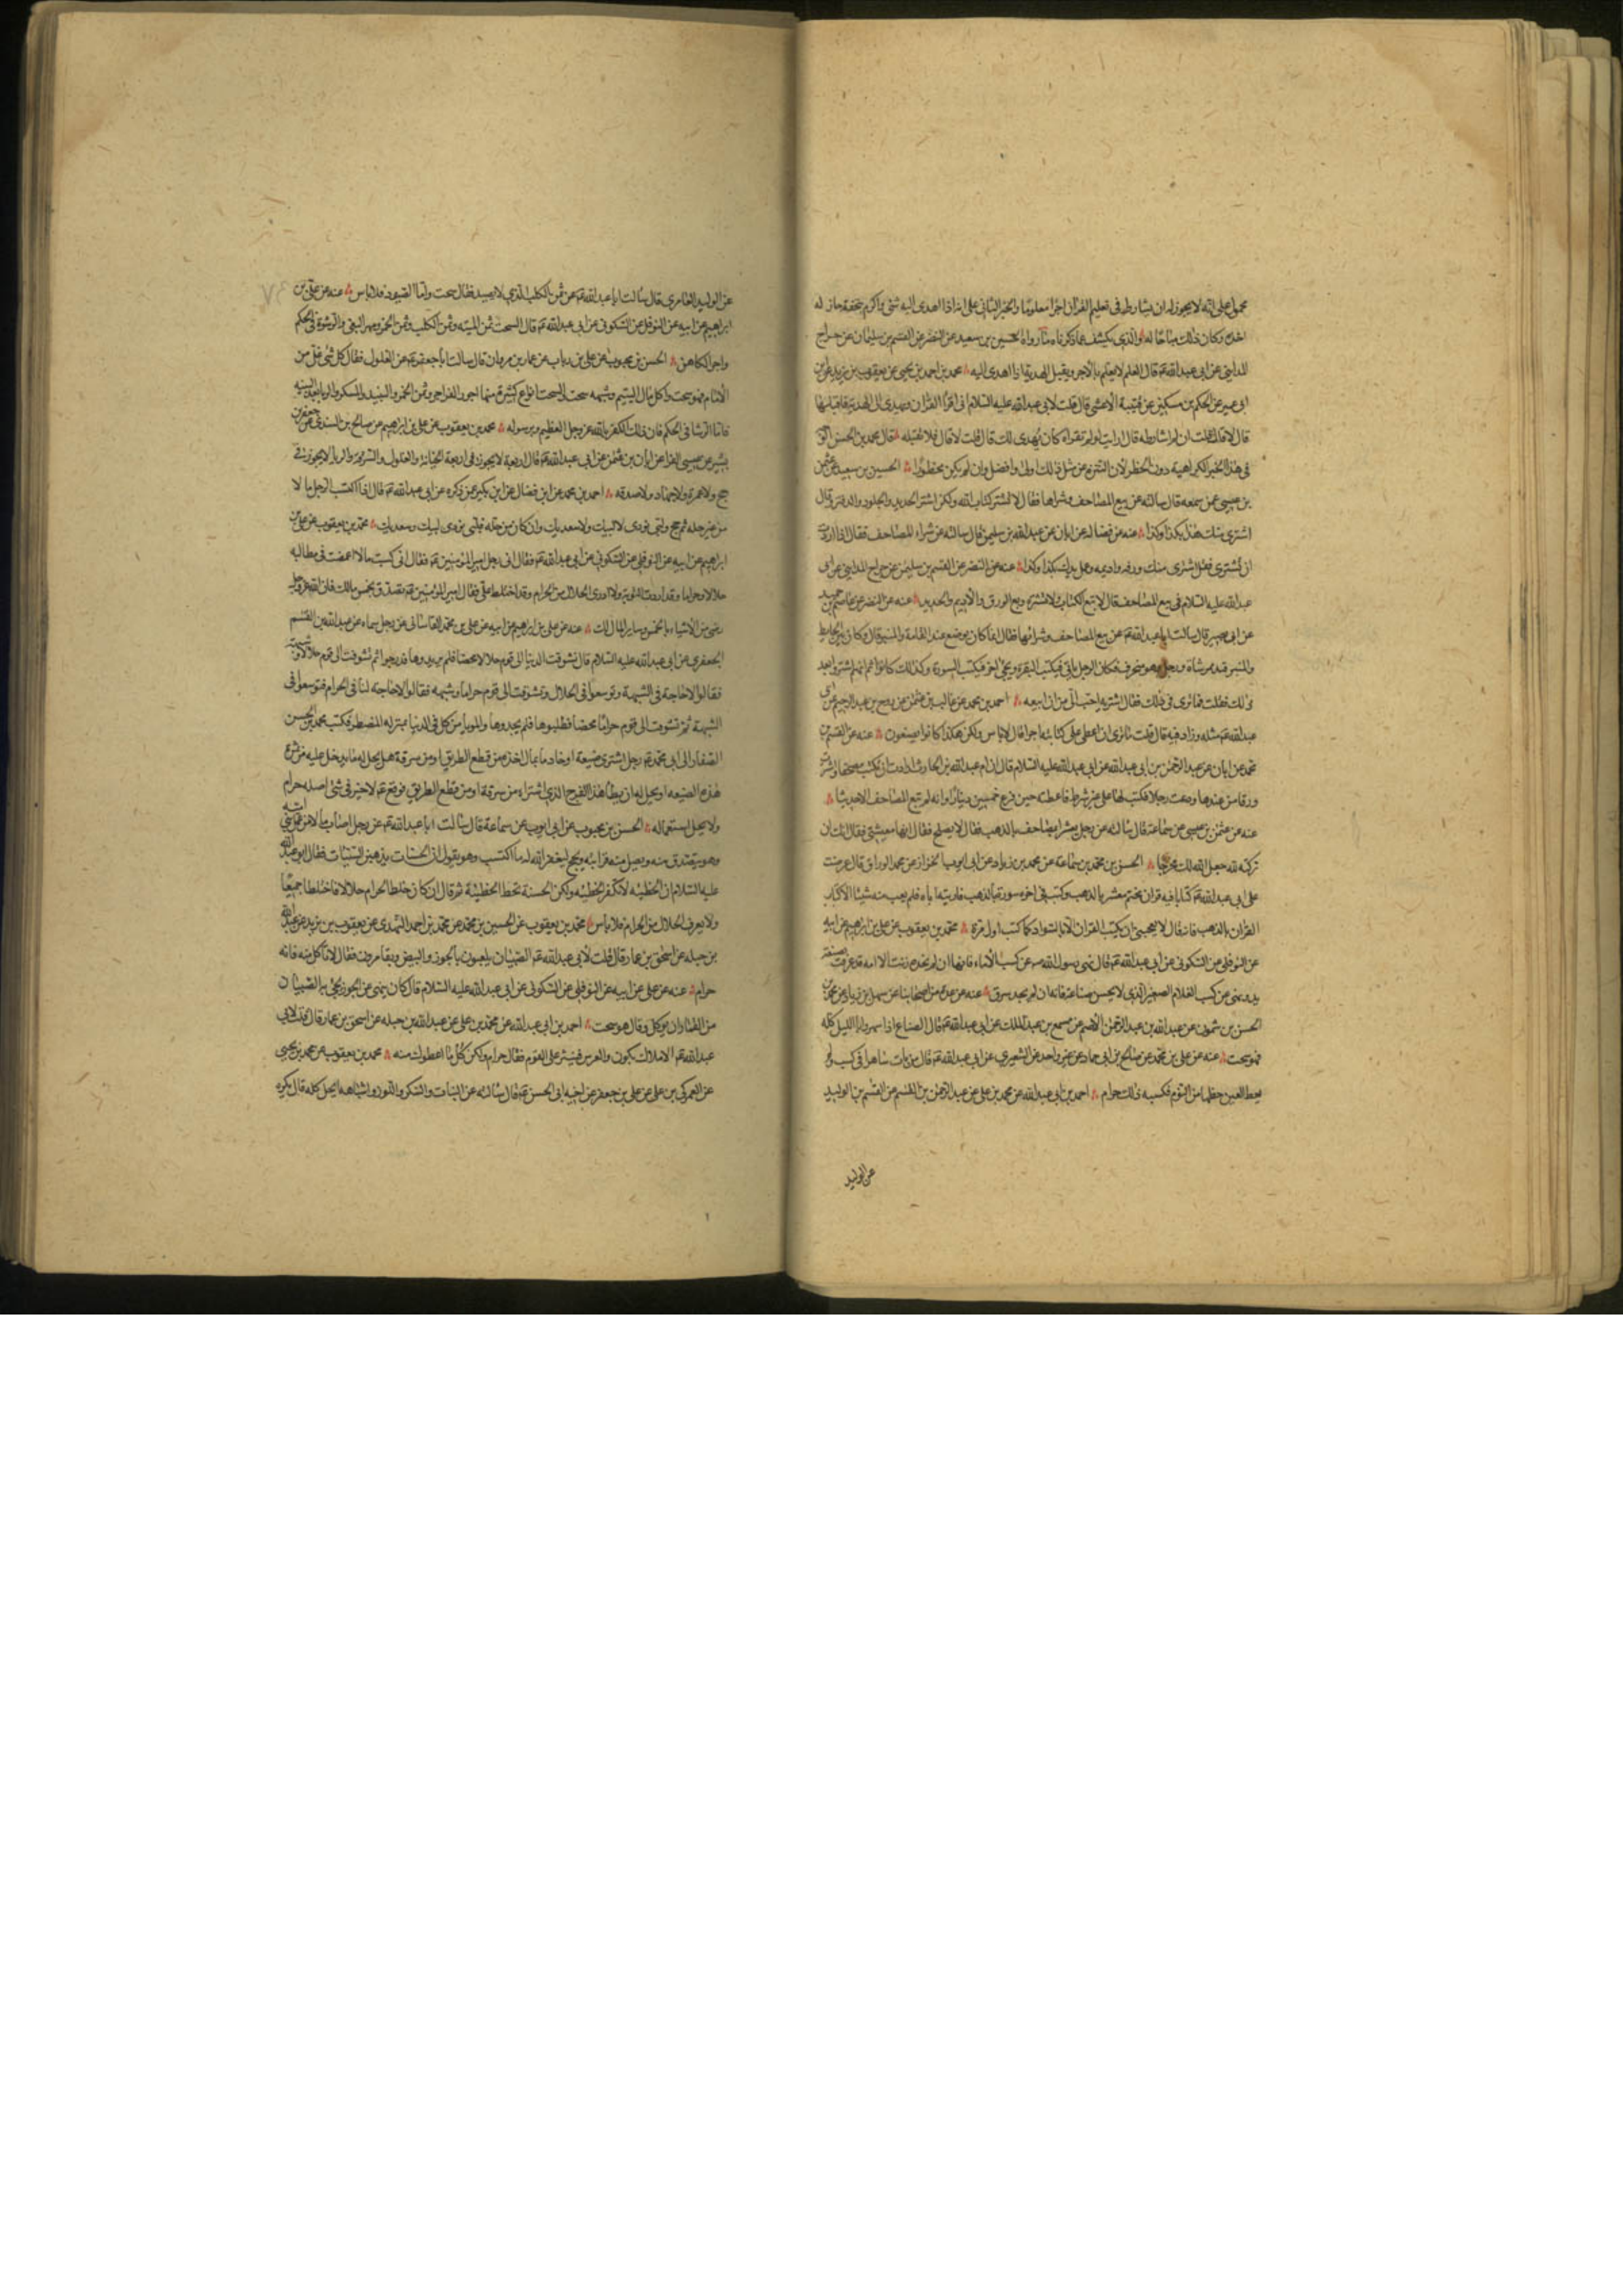 محمول على انه لا يجوز له ان يشارط فى تعليم القران اجرا معلوما والخبر الثانى على انه اذا اهدى اليه شئ واكرم بتحفة جاز له
اخذه وكان ذلك مباحا له والذى يكشف عما ذكرناه ما رواه الحسين بن سعيد عن النضر عن القسم بن سليمان عن جراح
المداينى عن ابى عبد الله عم قال المعلم لا يعلم بالاجر ويقبل الهدية اذا اهدى اليه محمد بن احمد بن يحيى عن يعقوب بن يزيد عن ابن
ابى عمير عن الحكم بن مسكين عن قتيبة الاعشى قال قلت لابى عبد الله عليه السلام انى اقرا القران وتهدى الى الهدية فاقبلها
قال لا قال قلت ان لم اشارطه قال ارايت لو لم تقراه كان يهدى لك قال قلت لا قال فلا تقبله قال محمد بن الحسن
فى هذا الخبر الكراهية دون الحظر لان التنزه عن مثل ذلك اولى وافضل وان لم يكن محظورا الحسين بن سعيد عن عثمن
بن عيسى عن سمعه قال سالته عن بيع المصاحف وشراها فقال لا تشتر كتاب الله ولكن اشتر الحديد والجلود والدفتر وقال
اشترى منك هذا بكذا وكذا عنه عن فضاله عن ابان عن عبد الله بن سليمن قال سالته عن شراء المصاحف فقال اذا اردت
ان تشترى فقل اشترى منك ورقه واديمه وعمل يدك بكذا وكذا عنه عن النضر عن القسم بن سليمن عن جراح المداينى عن ابى
عبد الله عليه السلام فى بيع المصاحف قال لا تبع الكتاب ولا تشتره وبع الورق والاديم والحديد عنه عن النضر عن عاصم بن حميد
عن ابى بصير قال سالت ابا عبد الله عم عن بيع المصاحف وشرائها فقال انما كان يوضع عند القامة والمنبر قال وكان بين الحايط
والمنبر قيد ممر شاة ورجل وهو منحرف فكان الرجل ياتى فيكتب البقره ويجئ اخر فيكتب السورة وكذلك كانوا ثم انهم اشتروا بعد
ذلك فقلت فما ترى فى ذلك فقال اشتريه احب الى من ان ابيعه احمد بن محمد عن غالب بن عثمن عن روح بن عبد الرحيم عن ابى
عبد الله عم مثله وزاد فيه قال قلت ما ترى ان اعطى على كتابته اجرا قال لا باس ولكن هكذا كانوا يصنعون عنه عن القسم بن
محمد عن ابان عن عبد الرحمن بن ابى عبد الله عن ابى عبد الله عليه السلام قال ان ام عبد الله بن الحارث ارادت ان تكتب مصحفا واشترت
ورقا من عندها ودعت رجلا فكتب لها على غير شرط فاعطته حين فرغ خمسين دينارا وانه لم تبع المصاحف الا حديثا
عنه عن عثمن بن عيسى عن سماعة قال سالته عن رجل يعشر المصاحف بالذهب فقال لا يصلح فقال انها معيشتى فقال انك ان
تركته لله جعل الله لك مخرجا الحسن بن محمد بن سماعة عن محمد بن زياد عن ابى ايوب الخزاز عن محمد الوراق قال عرضت
على ابى عبد الله عم كتابا فيه قران مختم معشر بالذهب وكتب فى اخره سورة بالذهب فاريته اياه فلم يعب منه شيئا الا كتاب
القران بالذهب فانه قال لا يعجبنى ان يكتب القران الا بالسواد كما كتب اول مرة محمد بن يعقوب عن على بن ابراهيم عن ابيه
عن النوفلى عن السكونى عن ابى عبد الله عم قال نهى رسول الله ص عن كسب الاماء فانها ان لم تجد زنت الا امه قد عرفت بصنعة
يد ونهى عن كسب الغلام الصغير الذى لا يحسن صناعة فانه ان لم يجد سرق عنه عن عدة من اصحابنا عن سهل بن زياد عن محمد بن
الحسن بن شمون عن عبد الله بن عبد الرحمن الاصم عن مسمع بن عبد الملك عن ابى عبد الله عم قال الصناع اذا سهروا الليل كله
فهو سحت عنه عن على بن محمد عن صالح بن ابى حماد عن غير واحد عن الشعيرى عن ابى عبد الله عم قال من بات ساهرا فى كسب ولم
يعط العين حظها من النوم فكسبه ذلك حرام احمد بن ابى عبد الله عن محمد بن على عن عبد الرحمن بن ابى هاشم عن القسم بن الوليد
عن الوليد
عن الوليد العامرى قال سالت ابا عبد الله عم عن ثمن الكلب الذى لا يصيد فقال سحت واما الصيود فلا باس عنه عن على بن
ابراهيم عن ابيه عن النوفلى عن السكونى عن ابى عبد الله عم قال السحت ثمن الميته وثمن الكلب وثمن الخمر ومهر البغى والرشوة فى الحكم
واجر الكاهن الحسن بن محبوب عن على بن رياب عن عمار بن مروان قال سالت ابا جعفر عم عن الغلول فقال كل شئ غل من
الامام فهو سحت واكل مال اليتيم وشبهه سحت والسحت انواع كثيرة منها اجور الفواجر وثمن الخمر والنبيذ والمسكر والربا بعد البينه
فاما الرشا فى الحكم فان ذلك الكفر بالله عز وجل العظيم وبرسوله محمد بن يعقوب عن على بن ابراهيم عن صالح بن السندى عن جعفر بن
بشير عن عيسى الفرا عن ابان بن عثمن عن ابى عبد الله عم قال اربعة لا يجوز فى اربعة الخيانة والغلول والسرقه والربا لا يجوز فى
حج ولا عمرة ولا جهاد ولا صدقه احمد بن محمد عن ابن فضال عن ابن بكير عمن ذكره عن ابى عبد الله عم قال اذا اكتسب الرجل مالا
من غير حله ثم حج ولبى نودى لا لبيك ولا سعديك وان كان من حله فلبى نودى لبيك وسعديك محمد بن يعقوب عن على بن
ابراهيم عن ابيه عن النوفلى عن السكونى عن ابى عبد الله عم فقال اتى رجل امير المؤمنين عم فقال انى كسبت مالا اغمضت فى مطالبه
حلالا وحراما وقد اردت التوبة ولا ادرى الحلال من الحرام وقد اختلط على فقال امير المؤمنين عم تصدق بخمس مالك فان الله عز وجل
رضى من الاشياء بالخمس وساير المال لك عنه عن على بن ابراهيم عن ابيه عن على بن محمد القاسانى عن رجل سماه عن عبد الله بن القسم
الجعفرى عن ابى عبد الله عليه السلام قال تشوقت الدنيا الى قوم حلالا محضا فلم يريدوها فدرجوا ثم تشوقت الى قوم حلالا وشبهة
فقالوا لا حاجة لنا فى الشبهة وتوسعوا فى الحلال وتشوقت الى قوم حراما وشبهه فقالوا لا حاجة لنا فى الحرام فتوسعوا فى
الشبهة ثم تشوقت الى قوم حراما محضا فطلبوها فلم يجدوها والمؤمن ياكل فى الدنيا بمنزله المضطر فكتب محمد بن الحسن
الصفار الى ابى محمد عم رجل اشترى ضيعة او خادما بمال اخذه من قطع الطريق او من سرقة هل يحل له ما يدخل عليه من ثمرة
هذه الضيعه او يحل له ان يطا هذا الفرج الذى اشتراه من سرقة او من قطع الطريق فوقع عم لا خير فى شئ اصله حرام
ولا يحل استعماله الحسن بن محبوب عن ابى ايوب عن سماعة قال سالت ابا عبد الله عم عن رجل اصاب مالا من عمل بنى امية
وهو يتصدق منه ويصل منه قرابته ويحج ليغفر الله له ما اكتسب وهو يقول ان الحسنات يذهبن السيئات فقال ابو عبد الله
عليه السلام ان الخطيئه لا تكفر الخطيئه ولكن الحسنة تحط الخطيئة ثم قال ان كان خلط الحرام حلالا فاختلطا جميعا
ولا يعرف الحلال من الحرام فلا باس محمد بن يعقوب عن الحسين بن محمد عن محمد بن احمد النهدى عن يعقوب بن يزيد عن عبد الله
بن جبله عن اسحق بن عمار قال قلت لابى عبد الله عم الصبيان يلعبون بالجوز والبيض ويقامرون فقال لا تاكل منه فانه
حرام عنه عن على عن ابيه عن النوفلى عن السكونى عن ابى عبد الله عليه السلام قال كان ينهى عن الجوز يجئ به الصبيان
من القمار ان يوكل وقال هو سحت احمد بن ابى عبد الله عن محمد بن على عن عبد الله بن جبله عن اسحق بن عمار قال قلت لابى
عبد الله عم الاملاك يكون والعرس فينثر على القوم فقال حرام ولكن كل ما اعطوك منه محمد بن يعقوب عن محمد بن يحيى
عن العمركى بن على عن على بن جعفر عن اخيه ابى الحسن عم قال سالته عن النثار والسكر واللوز واشباهه ايحل اكله قال يكره